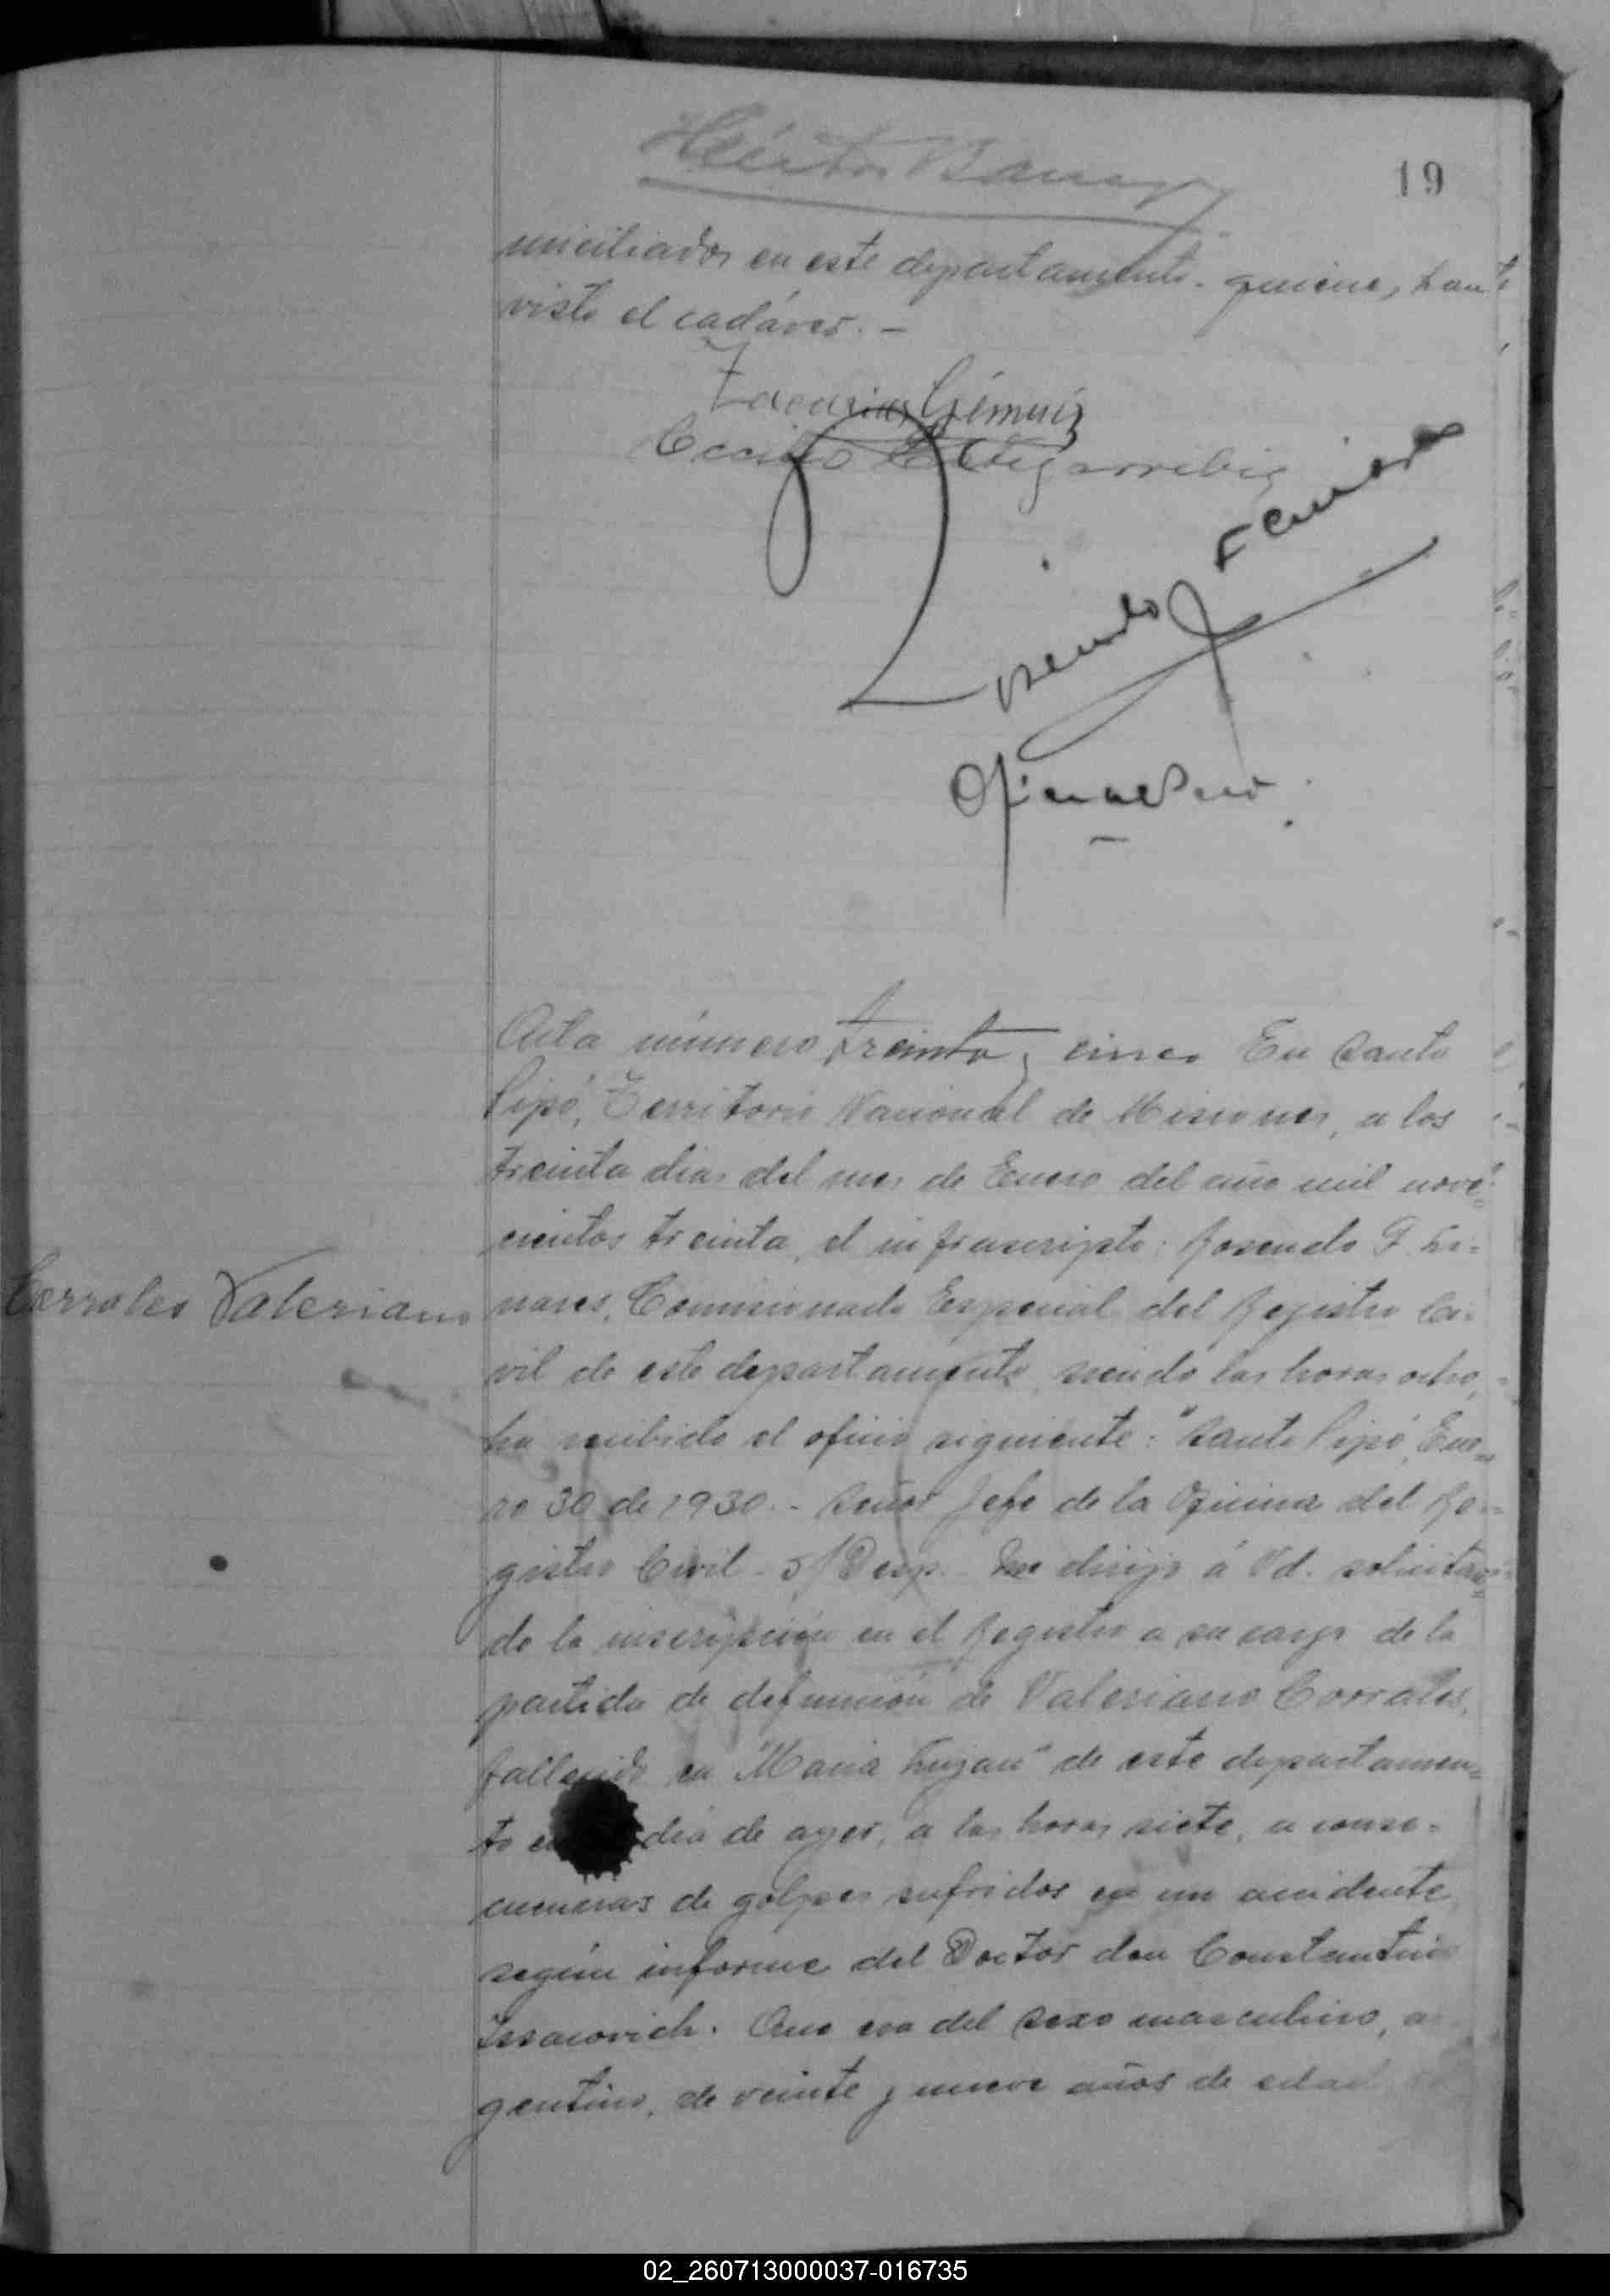 Héctor Barney
19
miciliados en este departamento. quienes han
visto el cadáver. —
Zacarias Giménez
Cecilio Etchegarribia
Rosendo Linares
Acta número treinta y cinco En Santo
Pipó, Territorio Nacional de Misiones, a los
treinta dias del mes de Enero del año mil nove=
cientos treinta, el infrascripto: Rosendo F. Li=
nares, Comisionado Especial del Registro Ci=
Corrales Valeriano
vil de este departamento, siendo las horas ocho,
ha recibido el oficio siguiente: "Santo Pipó, Ene=
ro 30 de 1930.- Señor Jefe de la Oficina del Re=
gistro Civil - S/Desp.- Me dirijo á Vd. solicitan=
do la inscripción en el Registro a su cargo de la
partida de defunción de Valeriano Corrales,
fallecido en "Maria Lujan" de este departamen=
to e dia de ayer, a las horas siete, a conse=
cuencias de golpes sufridos en un accidente,
según informe del Doctor don Constantino
Issacovich. Que era del sexo masculino, ar
gentino, de veinte y nueve años de edad
02_260713000037-016735